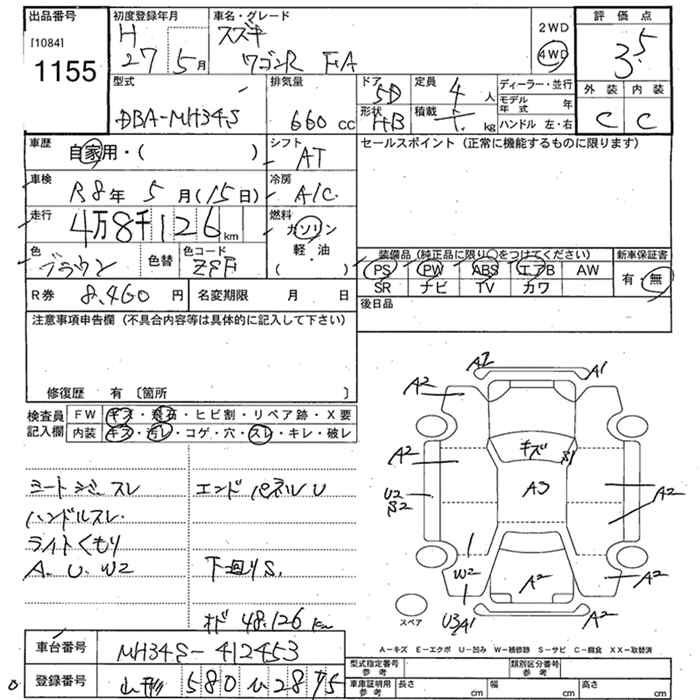 出品番号 初度登録年月 車名・グレード 評価点
[1084] H スズキ 2WD
1155 27 5月 ワゴンR FA 4WD 3.5
型式 排気量 ドア 5D 定員 4人 ディーラー・並行 外装 内装
DBA-MH34S 660cc 形状 HB 積載 kg モデル年式 年 C C
ハンドル 左・右
車歴 自家用・( ) シフト AT セールスポイント(正常に機能するものに限ります)
車検 R8年 5月(15日) 冷房 A/C
走行 4万8千126km 燃料 ガソリン
軽・油
( )
色 ブラウン 色替 色コード
装備品(純正品に限り○をつけてください) 新車保証書
PS PW ABS エアB AW 有・無
SR ナビ TV カワ
R券 8,460円 名変期限 月 日 後日品
注意事項申告欄(不具合内容等は具体的に記入して下さい)
修復歴 有〔箇所 〕
検査員記入欄 FW キズ・飛石・ヒビ割・リペア跡・X要
内装 キズ・汚レ・コゲ・穴・スレ・キレ・破レ
シミ スレ エンドパネルU
ハンドルスレ
ライトくもり
A.U.W2 下回りS.
48.126km
A2 A1
A2
キズ S1
A2 A3 A2
U2
S2
W2 A2 A2
U3A1 A2
スペア
A-キズ E-エクボ U-凹み W-補修跡 S-サビ C-腐食 XX-取替済
車台番号 MH34S-412453
登録番号 山形 580 い 2875
型式指定番号 参考 類別区分番号 参考
車庫証明用 参考 長さ cm 幅 cm 高さ cm